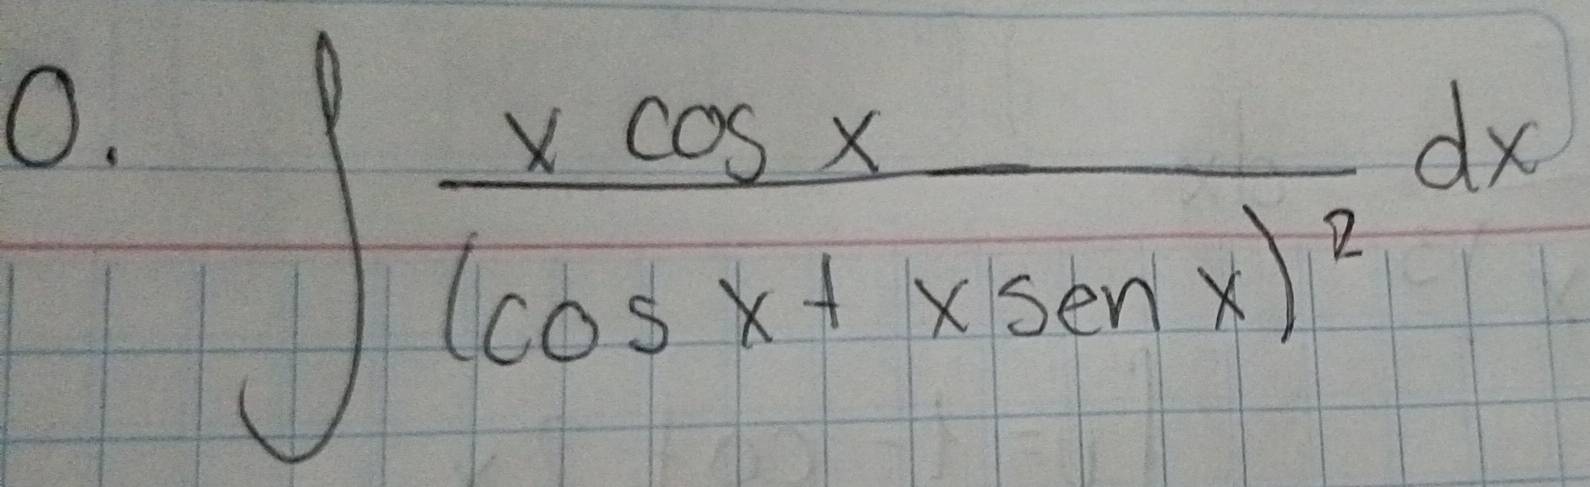 0. ∫ x cos x / (cos x + x sen x)² dx